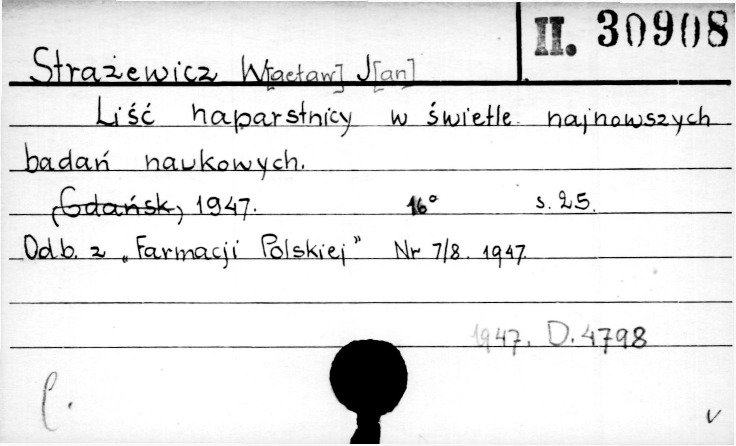 II. 30908
Strażewicz W[acław] J[an]
Liść naparstnicy w świetle najnowszych
badań naukowych.
(Gdańsk) 1947. 16° s. 25.
Odb. z „Farmacji Polskiej” Nr 7/8. 1947.
1947. D. 4798
v